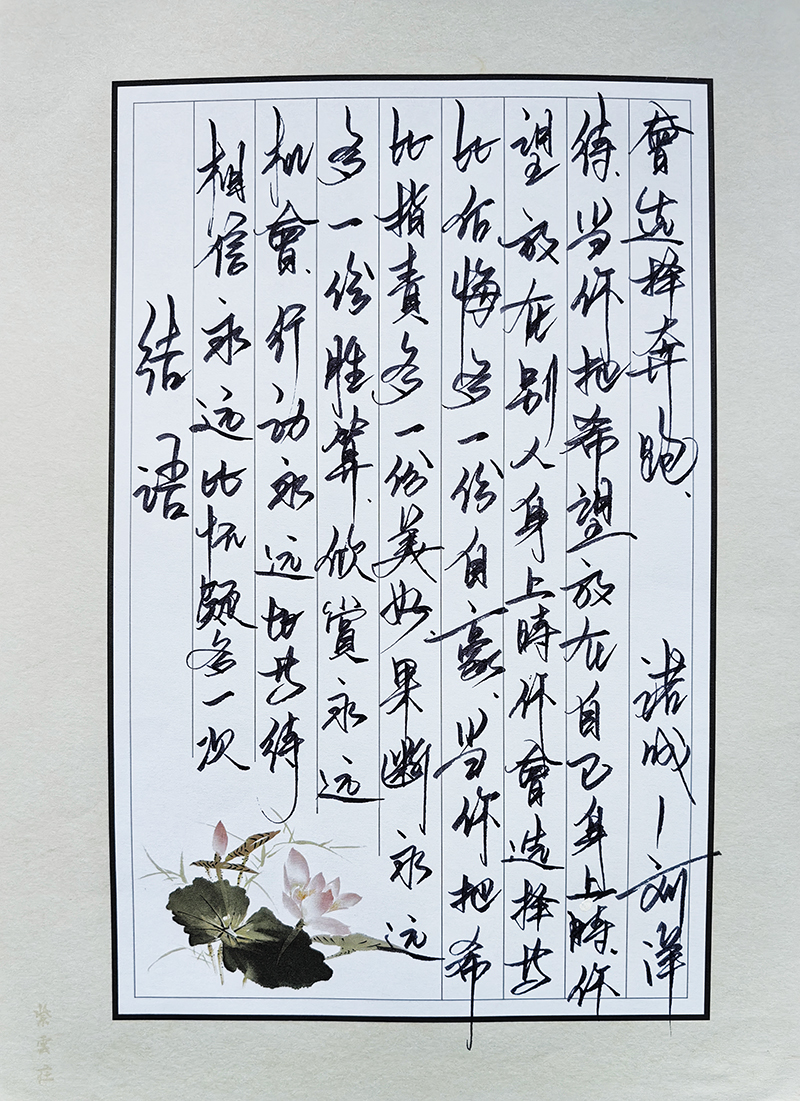 结语
相信永远比怀疑多一次
机會、行动永远比等待
多一份胜算、欣赏永远
比指责多一份美好、果断永远
比后悔多一份自豪、当你把希
望放在别人身上時你會选择等
待、当你把希望放在自己身上時、你
會选择奔跑、 诺成一刘洋